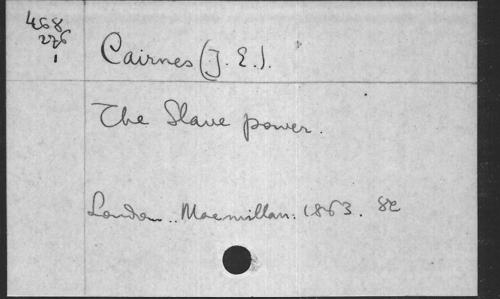 468
276
1
Cairnes (J. E.).
The Slave power.
London. Macmillan. 1863. 8º